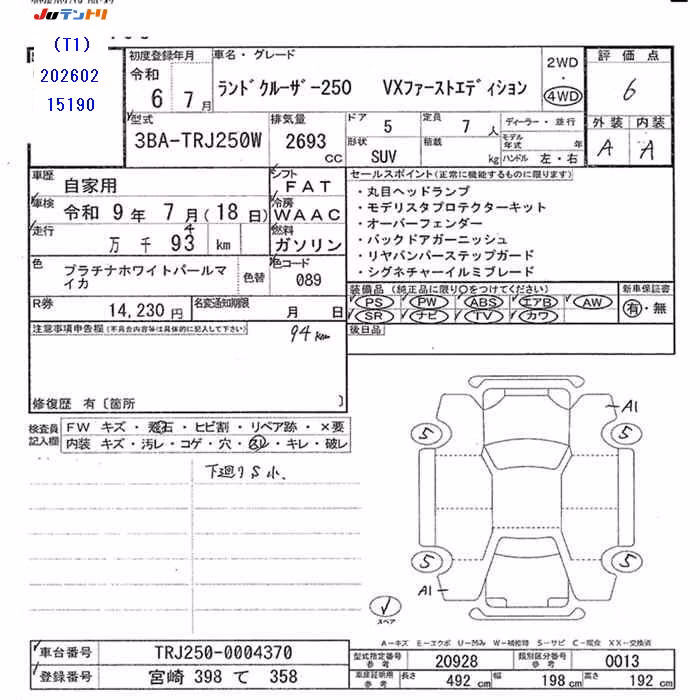 Juテントリ
(T1)
202602
15190
初度登録年月
令和
6 7 月
車名・グレード
ランドクルーザー250 VXファーストエディション
2WD
・
4WD
評価点
6
外装 内装
A A
型式
3BA-TRJ250W
排気量
2693
cc
ドア
5
定員
7 人
形状
SUV
積載
kg
ディーラー・並行
モデル
年式 年
ハンドル 左・右
車歴
自家用
車検
令和 9 年 7 月(18 日)
走行
万 千 93 km
4
シフト
FAT
冷房
WAAC
燃料
ガソリン
セールスポイント(正常に機能するものに限ります)
・丸目ヘッドランプ
・モデリスタプロテクターキット
・オーバーフェンダー
・バックドアガーニッシュ
・リヤバンパーステップガード
・シグネチャーイルミブレード
色
プラチナホワイトパールマイカ
色替
色コード
089
装備品(純正品に限り○をつけてください)
PS PW ABS エアB AW
SR ナビ TV カワ
新車保証書
有・無
R券
14,230 円
名変通知期限
月 日
後日品
注意事項申告欄(不具合内容等は具体的に記入して下さい)
94 km
修復歴 有〔箇所 〕
検査員
記入欄
FW キズ・飛石・ヒビ割・リペア跡・×要
内装 キズ・汚レ・コゲ・穴・スレ・キレ・破レ
下廻りS小、
A1
5 5
5 5
A1
スペア
A-キズ E-エクボ U-凹み W-補修跡 S-サビ C-腐食 XX-交換済
車台番号
TRJ250-0004370
登録番号
宮崎 398 て 358
型式指定番号
参考
20928
類別区分番号
参考
0013
車庫証明用
参考
長さ
492 cm
幅
198 cm
高さ
192 cm